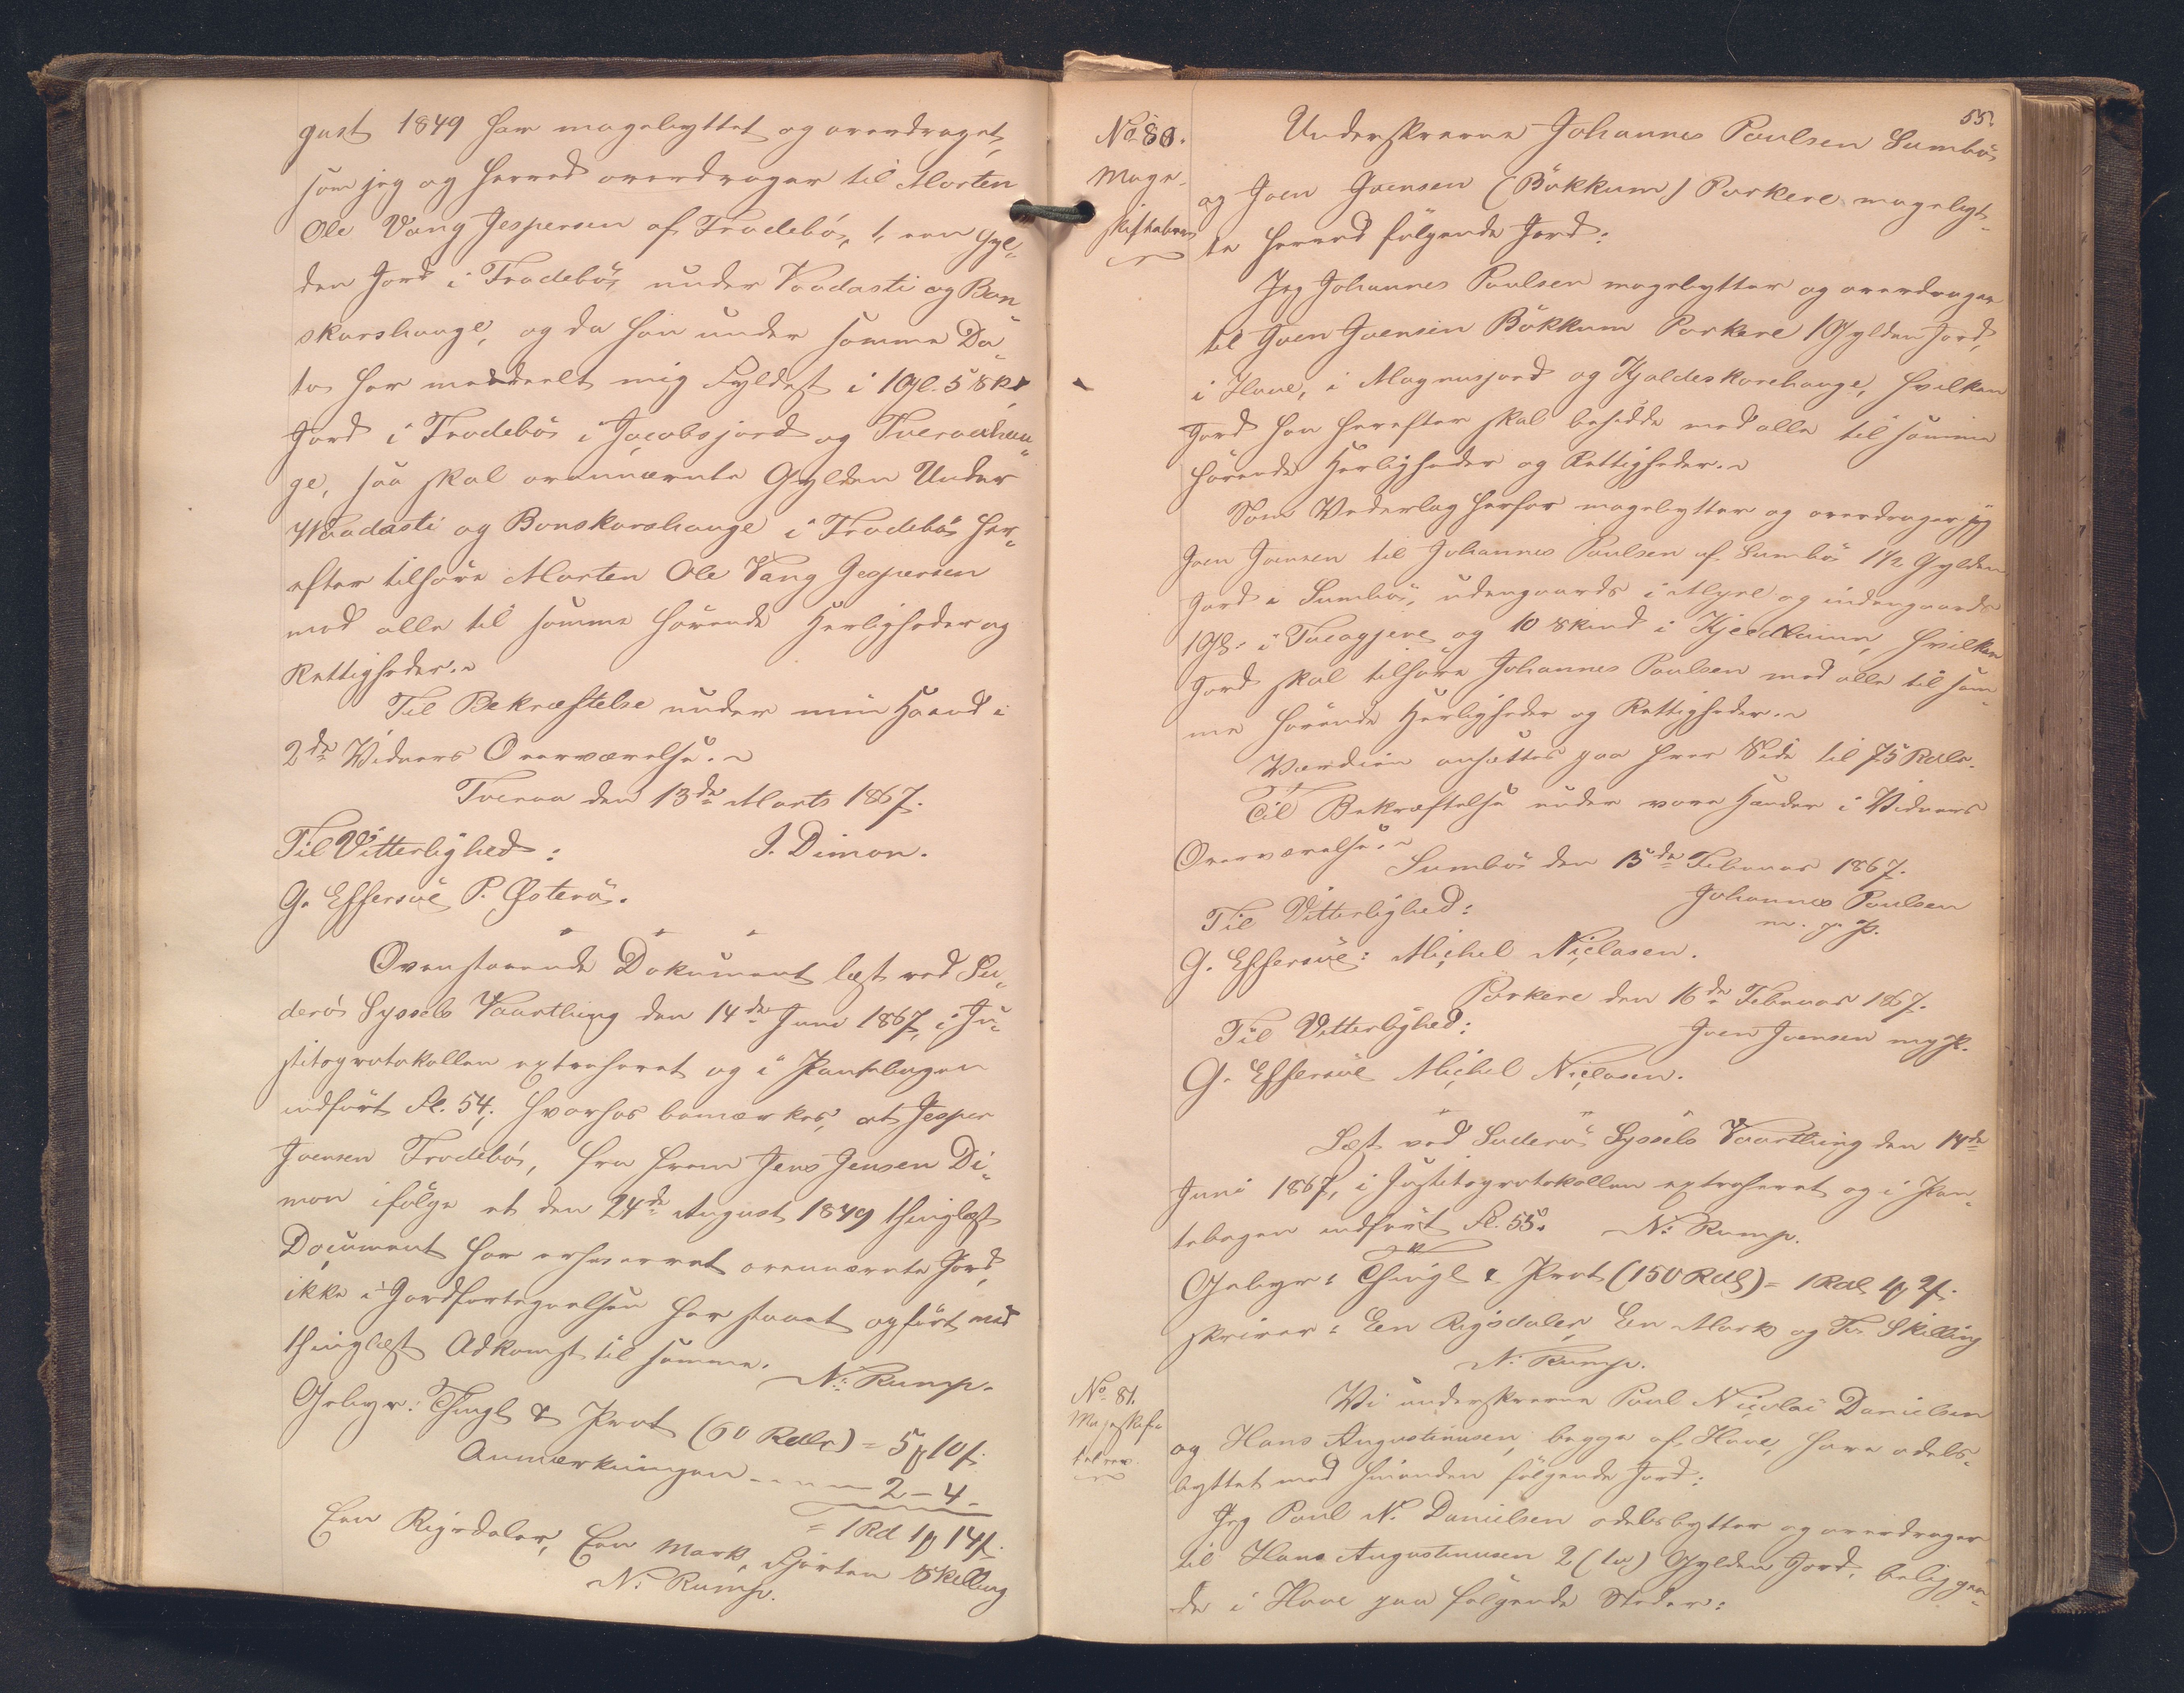 gust 1849 har magebyttet og overdraget,
som jeg og herved overdrager til Morten
Ole Vang Jespersen af Frodebö, 1, een Gyl-
den Jord i Frodebö, under Vaadasti og Bon-
skarshauge, og da han under samme Da-
to har meddeelt mig Fyldest i 1 Gl. 5 Sk.
Jord i Frodebö i Jacobsjord og Tveraahau-
ge, saa skal ovennævnte Gylden Under
Vaadasti og Bonskarshauge i Frodebö her-
efter tilhøre Morten Ole Vang Jespersen
med alle til samme hørende Herligheder og
Rettigheder.
Til Bekræftelse under min Haand i
2de Vidners Overværelse.
Tveraa den 13de Marts 1867.
Til Vitterlighed: J. Dimon.
G. Effersöe P. Østerö.
Ovenstaaende Dokument læst ved Su-
derö Syssels Vaarthing den 14de Juni 1867, i Ju-
stitsprotokollen extraheret og i Pantebogen
indført Fl. 54; hvorhos bemærkes, at Jesper
Joensen Frodebö, fra hvem Jens Jensen Di-
mon ifølge et den 24de August 1849 thinglæst
Document har erhvervet ovennævnte Jord,
ikke i Jordfortegnelsen har staaet opført med
thinglæst Adkomst til samme. N: Rump.
Gebyr: Thingl & Prot (60 Rdlr) = 5 ₥ 10 ß.
Anmærkningen - - - 2 - 4 -
= 1 Rd 1 ₥ 14 ß.
Een Rigsdaler, Een Mark, Fjorten Skilling
N: Rump.
55.
No 80.
Mage-
skiftebrev
Underskrevne Johannes Poulsen Sumbö
og Joen Joensen (Bökkum) Porkere magebyt-
te herved følgende Jord:
Jeg Johannes Poulsen magebytter og overdrager
til Joen Joensen Bökkum Porkere 1 Gylden Jord,
i Hove, i Magnusjord og Kjoldeskorehauge, hvilken
Jord han herefter skal besidde med alle til samme
hørende Herligheder og Rettigheder.
Som Vederlag herfor magebytter og overdrager jeg
Joen Joensen til Johannes Poulsen af Sumbö 1½ Gylden
Jord i Sumbö, udengaards i Myre og indengaards
1 Gl. i Tveagjere og 10 Skind i Kjeedluinn, hvilken
Jord skal tilhøre Johannes Poulsen med alle til sam-
me hørende Herligheder og Rettigheder.
Værdien ansættes paa hver Side til 75 Rdlr.
Til Bekræftelse under vore Hænder i Vidners
Overværelse.
Sumbö den 15de Februar 1867.
Til Vitterlighed: Johannes Poulsen
m. p. P.
G. Effersöe: Michel Niclasen.
Porkere den 16de Februar 1867.
Til Vitterlighed: Joen Joensen m p P.
G. Effersöe Michel Niclasen.
Læst ved Suderö Syssels Vaarthing den 14de
Juni 1867, i Justitsprotokollen extraheret og i Pan-
tebogen indført Fl. 55. N: Rump.
Gebyr: Thingl & Prot (150 Rdl) = 1 Rdl 1 ₥ 2 ß.
skriver: Een Rigsdaler, Een Mark og To Skilling
N: Rump.
No 81.
Mageskif-
tebrev.
Vi underskrevne Poul Nicolai Danielsen
og Hans Augustinusen, begge af Hove, have odels-
byttet med hinanden følgende Jord:
Jeg Poul N. Danielsen odelsbytter og overdrager
til Hans Augustinusen 2 (to) Gylden Jord, beliggen-
de i Hove paa følgende Steder: